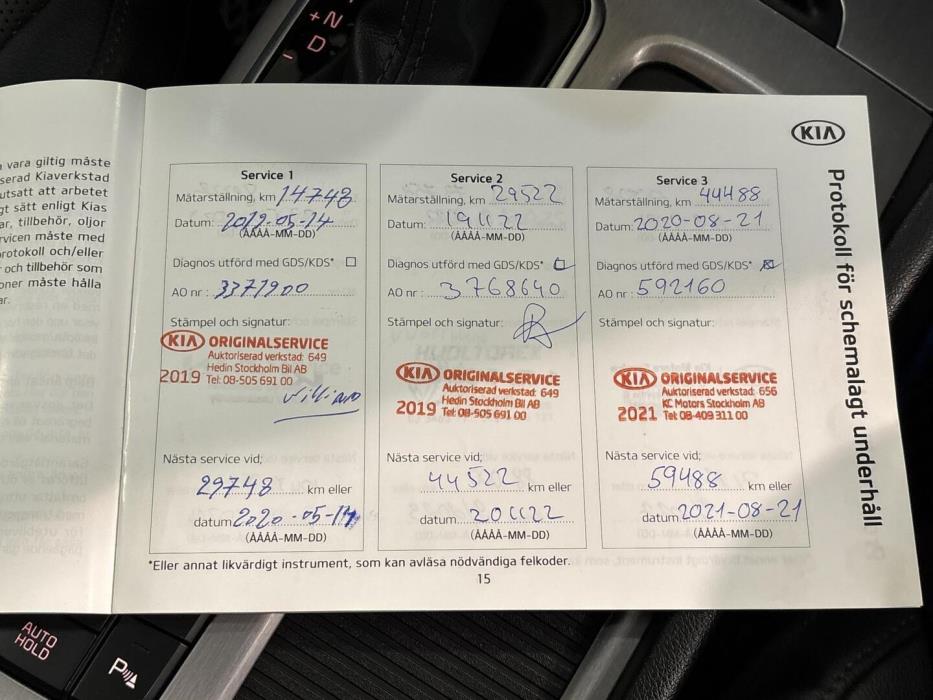 + N
D
-
vara giltig måste
serad Kiaverkstad
utsatt att arbetet
gt sätt enligt Kias
ar, tillbehör, oljor
rvicen måste med
protokoll och/eller
och tillbehör som
oner måste hålla
ar.
KIA
Protokoll för schemalagt underhåll
Service 1
Mätarställning, km 14748
Datum: 2019-05-14
(ÅÅÅÅ-MM-DD)
Diagnos utförd med GDS/KDS*
AO nr: 3371900
Stämpel och signatur:
KIA ORIGINALSERVICE
Auktoriserad verkstad: 649
Hedin Stockholm Bil AB
2019 Tel: 08-505 691 00
Nästa service vid;
29748 km eller
datum 2020-05-14
(ÅÅÅÅ-MM-DD)
Service 2
Mätarställning, km 29522
Datum: 191122
(ÅÅÅÅ-MM-DD)
Diagnos utförd med GDS/KDS*
AO nr: 3768640
Stämpel och signatur:
KIA ORIGINALSERVICE
Auktoriserad verkstad: 649
Hedin Stockholm Bil AB
2019 Tel: 08-505 691 00
Nästa service vid;
44522 km eller
datum 201122
(ÅÅÅÅ-MM-DD)
Service 3
Mätarställning, km 44488
Datum: 2020-08-21
(ÅÅÅÅ-MM-DD)
Diagnos utförd med GDS/KDS*
AO nr: 592160
Stämpel och signatur:
KIA ORIGINALSERVICE
Auktoriserad verkstad: 656
KC Motors Stockholm AB
2021 Tel: 08-409 311 00
Nästa service vid;
59488 km eller
datum 2021-08-21
(ÅÅÅÅ-MM-DD)
*Eller annat likvärdigt instrument, som kan avläsa nödvändiga felkoder.
15
AUTO
HOLD
P